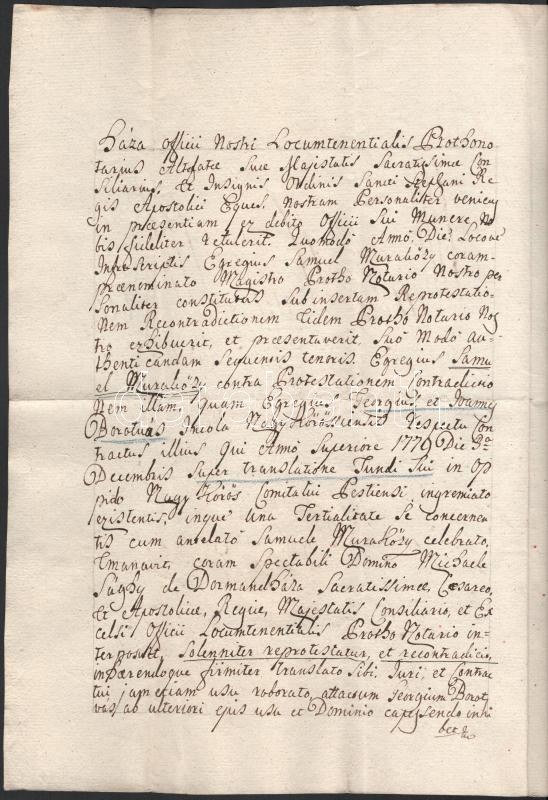 háza Officii Nostri Locumtenentialis Prothono
tarius Altefatae Suae Majestatis Sacratissimae Con
siliarius, et Insignis Ordinis Sancti Stephani Re
gis Apostolici Eques, nostram Personaliter veniens
in praesentiam, ex debito Officii Sui Munere, No
bis fideliter retulerit. Quomodo Anno, Die, Locoque
Infrascriptis Egregius Samuel Muraközy coram
praenominato Magistro Protho Notario Nostro per
sonaliter constitutus Subinsertam Reprotestatio
nem Recontradictionem Eidem Protho Notario Nos
tro exhibuerit, et praesentaverit, Suo Modo au
thenticandam Sequensis tenoris. Egregius Samu
el Muraközy contra Protestationem Contradictio
nem illam, quam Egregius Georgius, et Joannes
Borotvas Incola Nagy Körössiensis respectu Con
tractus illius qui Anno Superiore 1779 Die 3a
Decembris Super translatione Fundi Sui in Op
pido Nagy Körös Comitatui Pestiensi ingremiato
existentis, inque una Tertialitate Se concernen
tis cum antelato Samuele Muraközy celebrato,
Emanavit, coram Spectabili Domino Michaele
Sághy de Dormandháza Sacratissimae, Caesareo,
et Apostolicae, Regiae, Majestatis Consiliario, et Ex
celsi Officii Locumtenentialis Protho Notario in
terposuit, Solenniter reprotestatur, et recontradicit,
inhaerendoque firmiter translato Sibi Juri, et Contrac
tui jam etiam usu roborato, attactum Georgium Borot
vas ab ulteriori ejus usu et Dominio capessendo inhi
bet